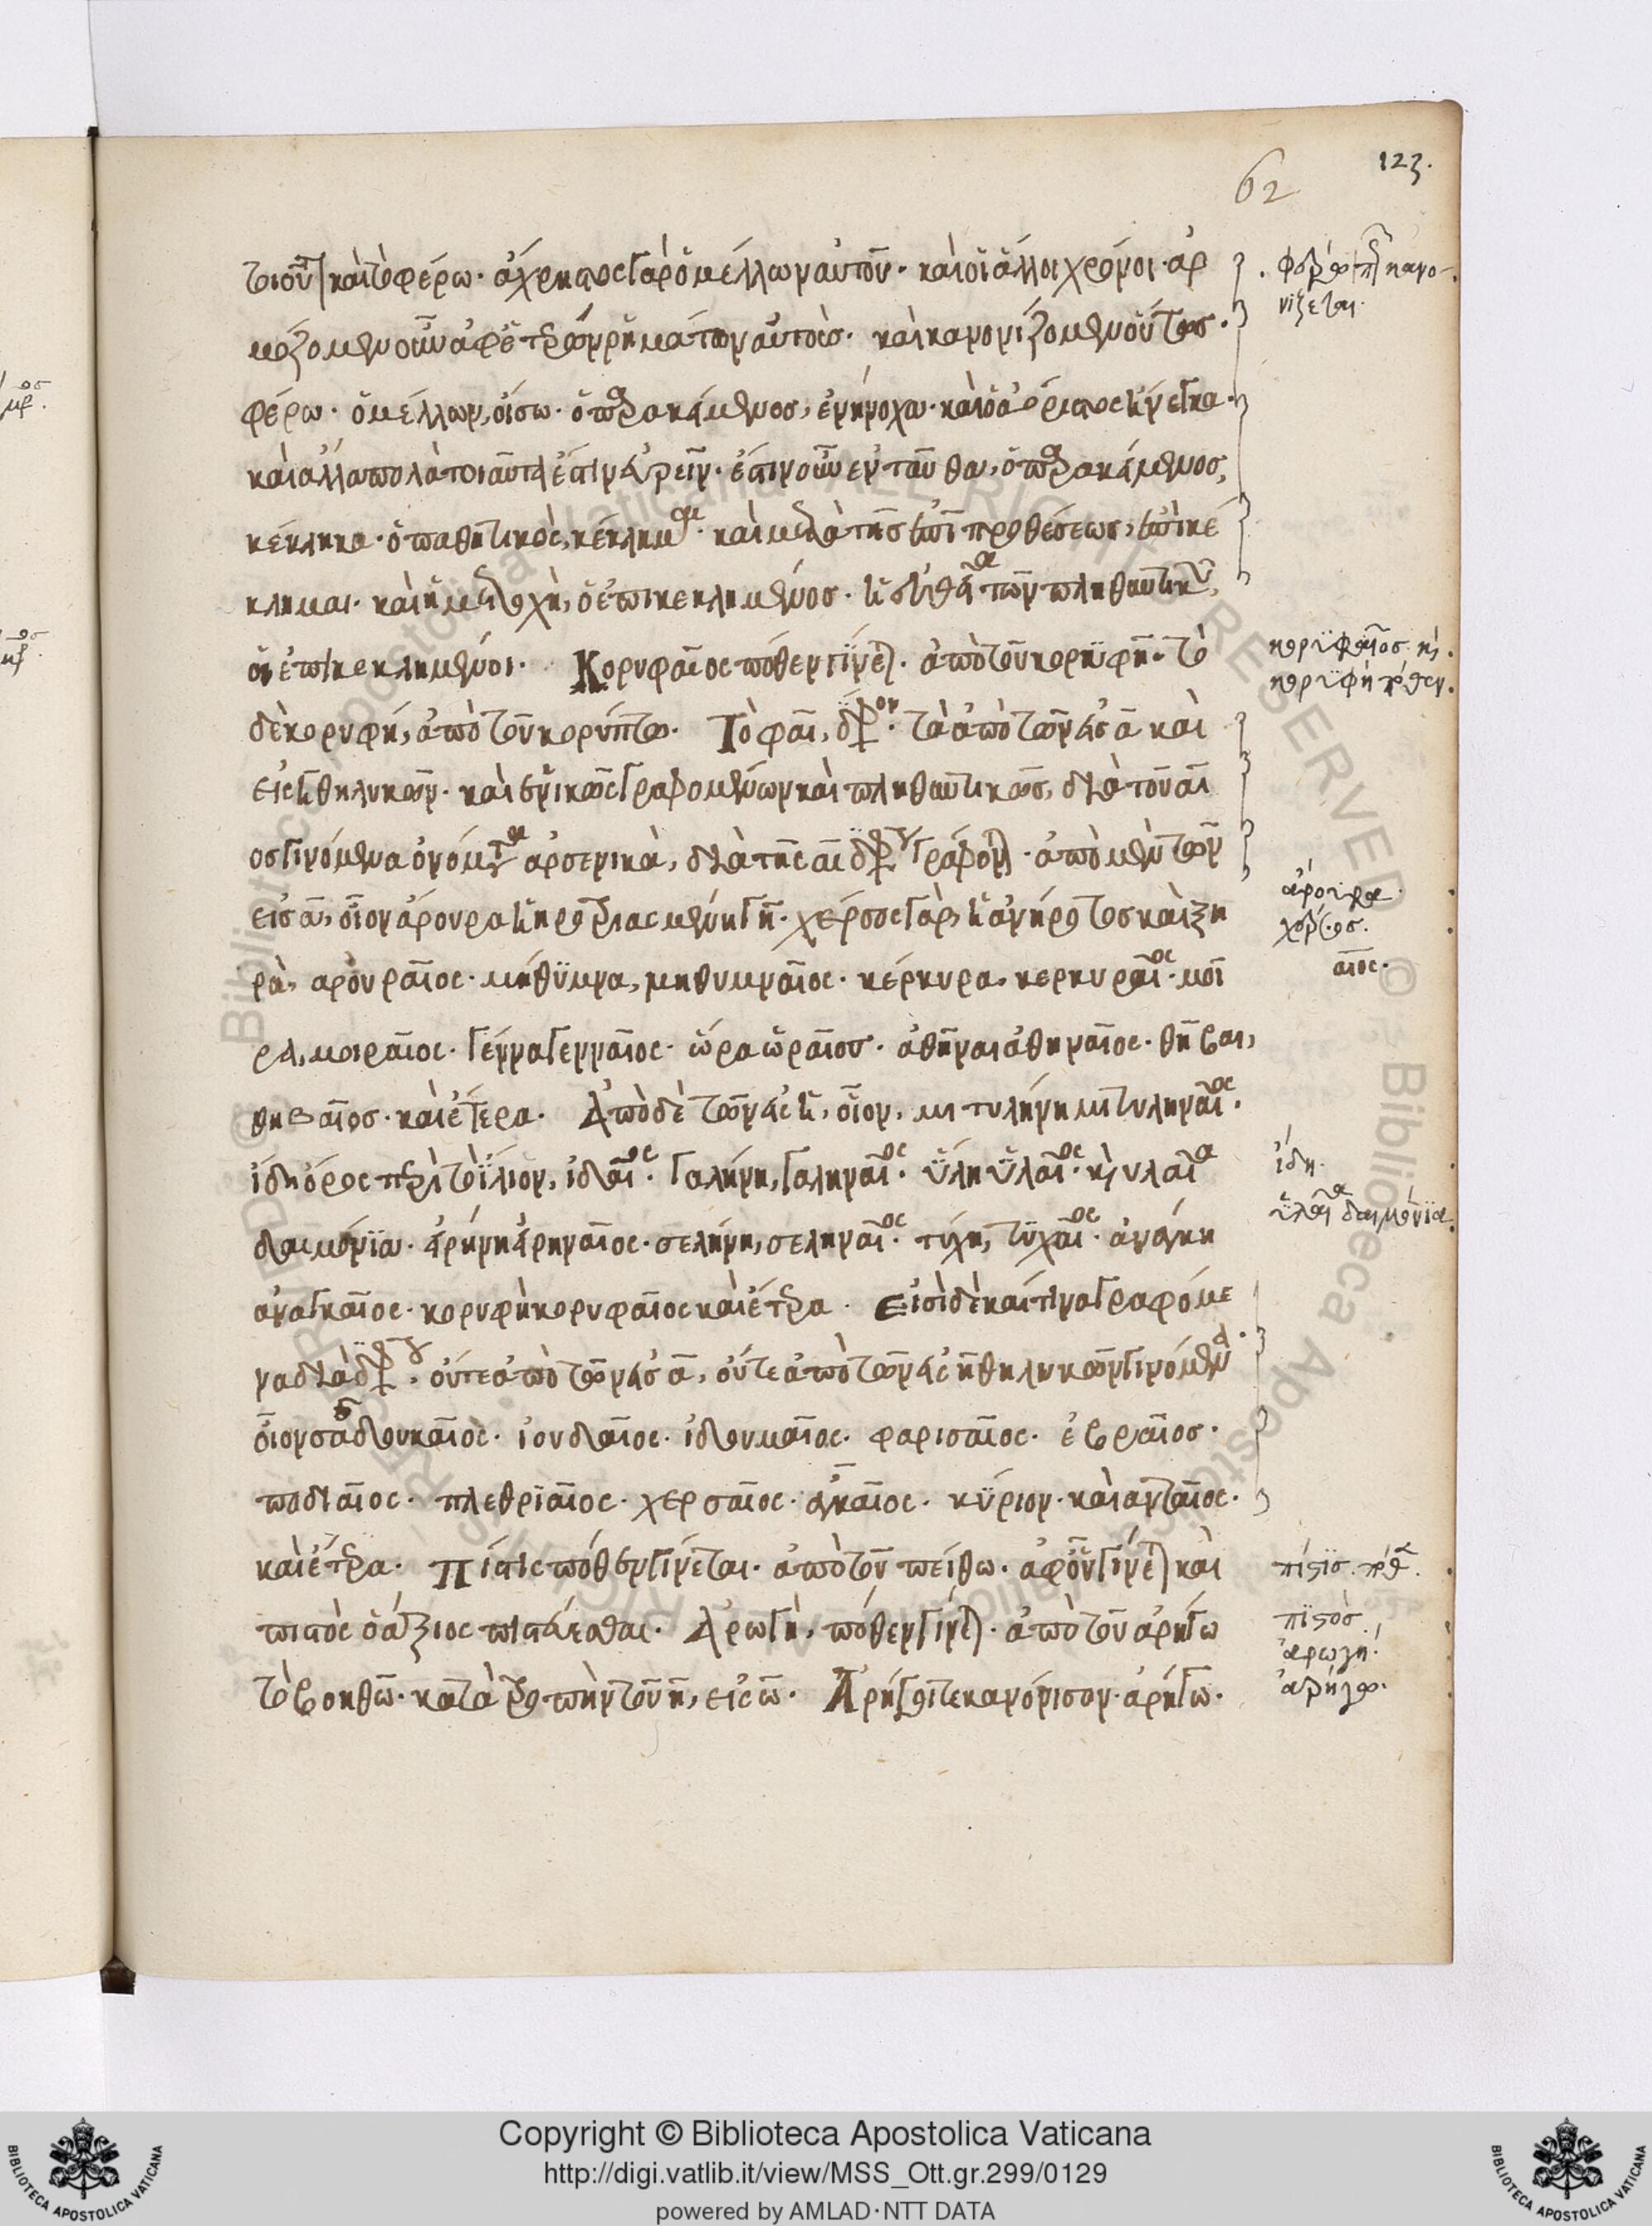 62
123.
τιοῦν καὶ τὸ φέρω· ἄχρηστος γὰρ ὁ μέλλων αὐτοῦ· καὶ οἱ ἄλλοι χρόνοι· ἁρ
μοζομένου οὖν ἀφ' ἑτέρων ῥημάτων αὐτοῖς· καὶ κανονιζομένου οὕτως·
φέρω· ὁ μέλλων, οἴσω· ὁ παρακείμενος, ἐνήνοχα· καὶ ὁ ἀόριστος ἤνεγκα·
καὶ ἄλλα πολὰ τοιαῦτα ἐστὶν εὑρεῖν· ἔστιν οὖν ἐνταῦθα, ὁ παρακείμενος,
κέκληκα· ὁ παθητικὸς, κέκλημαι· καὶ μετὰ τῆς ἐπὶ προθέσεως, ἐπικέ
κλημαι· καὶ ἡ μετοχὴ, ὁ ἐπικεκλημένος· ἡ εὐθεῖα τῶν πληθυντικῶν,
οἱ ἐπικεκλημένοι· Κορυφαῖος πόθεν γίνεται· ἀπὸ τοῦ κορυφή· τὸ
δὲ κορυφή, ἀπὸ τοῦ κορύπτω· Τὸ φαι, δίφθογγον· τὰ ἀπὸ τῶν εἰς α καὶ
εἰς η θηλυκῶν· καὶ ἑνικῶς γραφομένων καὶ πληθυντικῶς, διὰ τοῦ αι
ος γινόμενα ὀνόματα ἀρσενικὰ, διὰ τῆς αι διφθόγγου γράφονται· ἀπὸ μὲν τῶν
εἰς α, οἷον ἄρουρα ἡ ἠροτριασμένη γῆ· χέρσος γὰρ, ἡ ἀνήροτος καὶ ξη
ρὰ, ἀρουραῖος· μήθυμνα, μηθυμναῖος· κέρκυρα, κερκυραῖος· μοῖ
ρα, μοιραῖος· γέννα γενναῖος· ὥρα ὡραῖος· ἀθῆναι ἀθηναῖος· θῆβαι,
θηβαῖος· καὶ ἕτερα· Ἀπὸ δὲ τῶν εἰς η, οἷον, μιτυλήνη μιτυληναῖος·
ἴδη ὄρος περὶ τὸ ἴλιον, ἰδαῖος· γαλήνη, γαληναῖος· ὕλη ὑλαῖος· καὶ ὑλαῖα
δαιμόνια· εἰρήνη εἰρηναῖος· σελήνη, σεληναῖος· τύχη, τυχαῖος· ἀνάγκη
ἀναγκαῖος· κορυφὴ κορυφαῖος καὶ ἕτερα· Εἰσὶ δὲ καί τινα γραφόμε
να διὰ διφθόγγου, οὔτε ἀπὸ τῶν εἰς α, οὔτε ἀπὸ τῶν εἰς η θηλυκῶν γινόμενα·
οἷον σαδδουκαῖος· ἰουδαῖος· ἰδουμαῖος· φαρισαῖος· ἑβραῖος·
ποδιαῖος· πλεθριαῖος· χερσαῖος· ἀγκαῖος· κύριον· καὶ ἀνταῖος·
καὶ ἕτερα· Πίστις πόθεν γίνεται· ἀπὸ τοῦ πείθω· ἀφ' οὗ γίνεται καὶ
πιστὸς ὁ ἄξιος πιστεύεσθαι· Ἀρωγὴ, πόθεν γίνεται· ἀπὸ τοῦ ἀρήγω
τὸ βοηθῶ· κατὰ τροπὴν τοῦ η, εἰς ω· Ἀρήγοιτε κανόνισον· ἀρήγω·
φέρω πῶς κανο
νίζεται·
κορυφαῖος καὶ
κορυφὴ πόθεν·
ἄρουρα
χέρσος·
αῖος·
ἴδη·
ὑλαῖα δαιμόνια·
πίστις· πόθεν·
πιστὸς
ἀρωγή·
ἀρήγω·
Copyright © Biblioteca Apostolica Vaticana
http://digi.vatlib.it/view/MSS_Ott.gr.299/0129
powered by AMLAD·NTT DATA